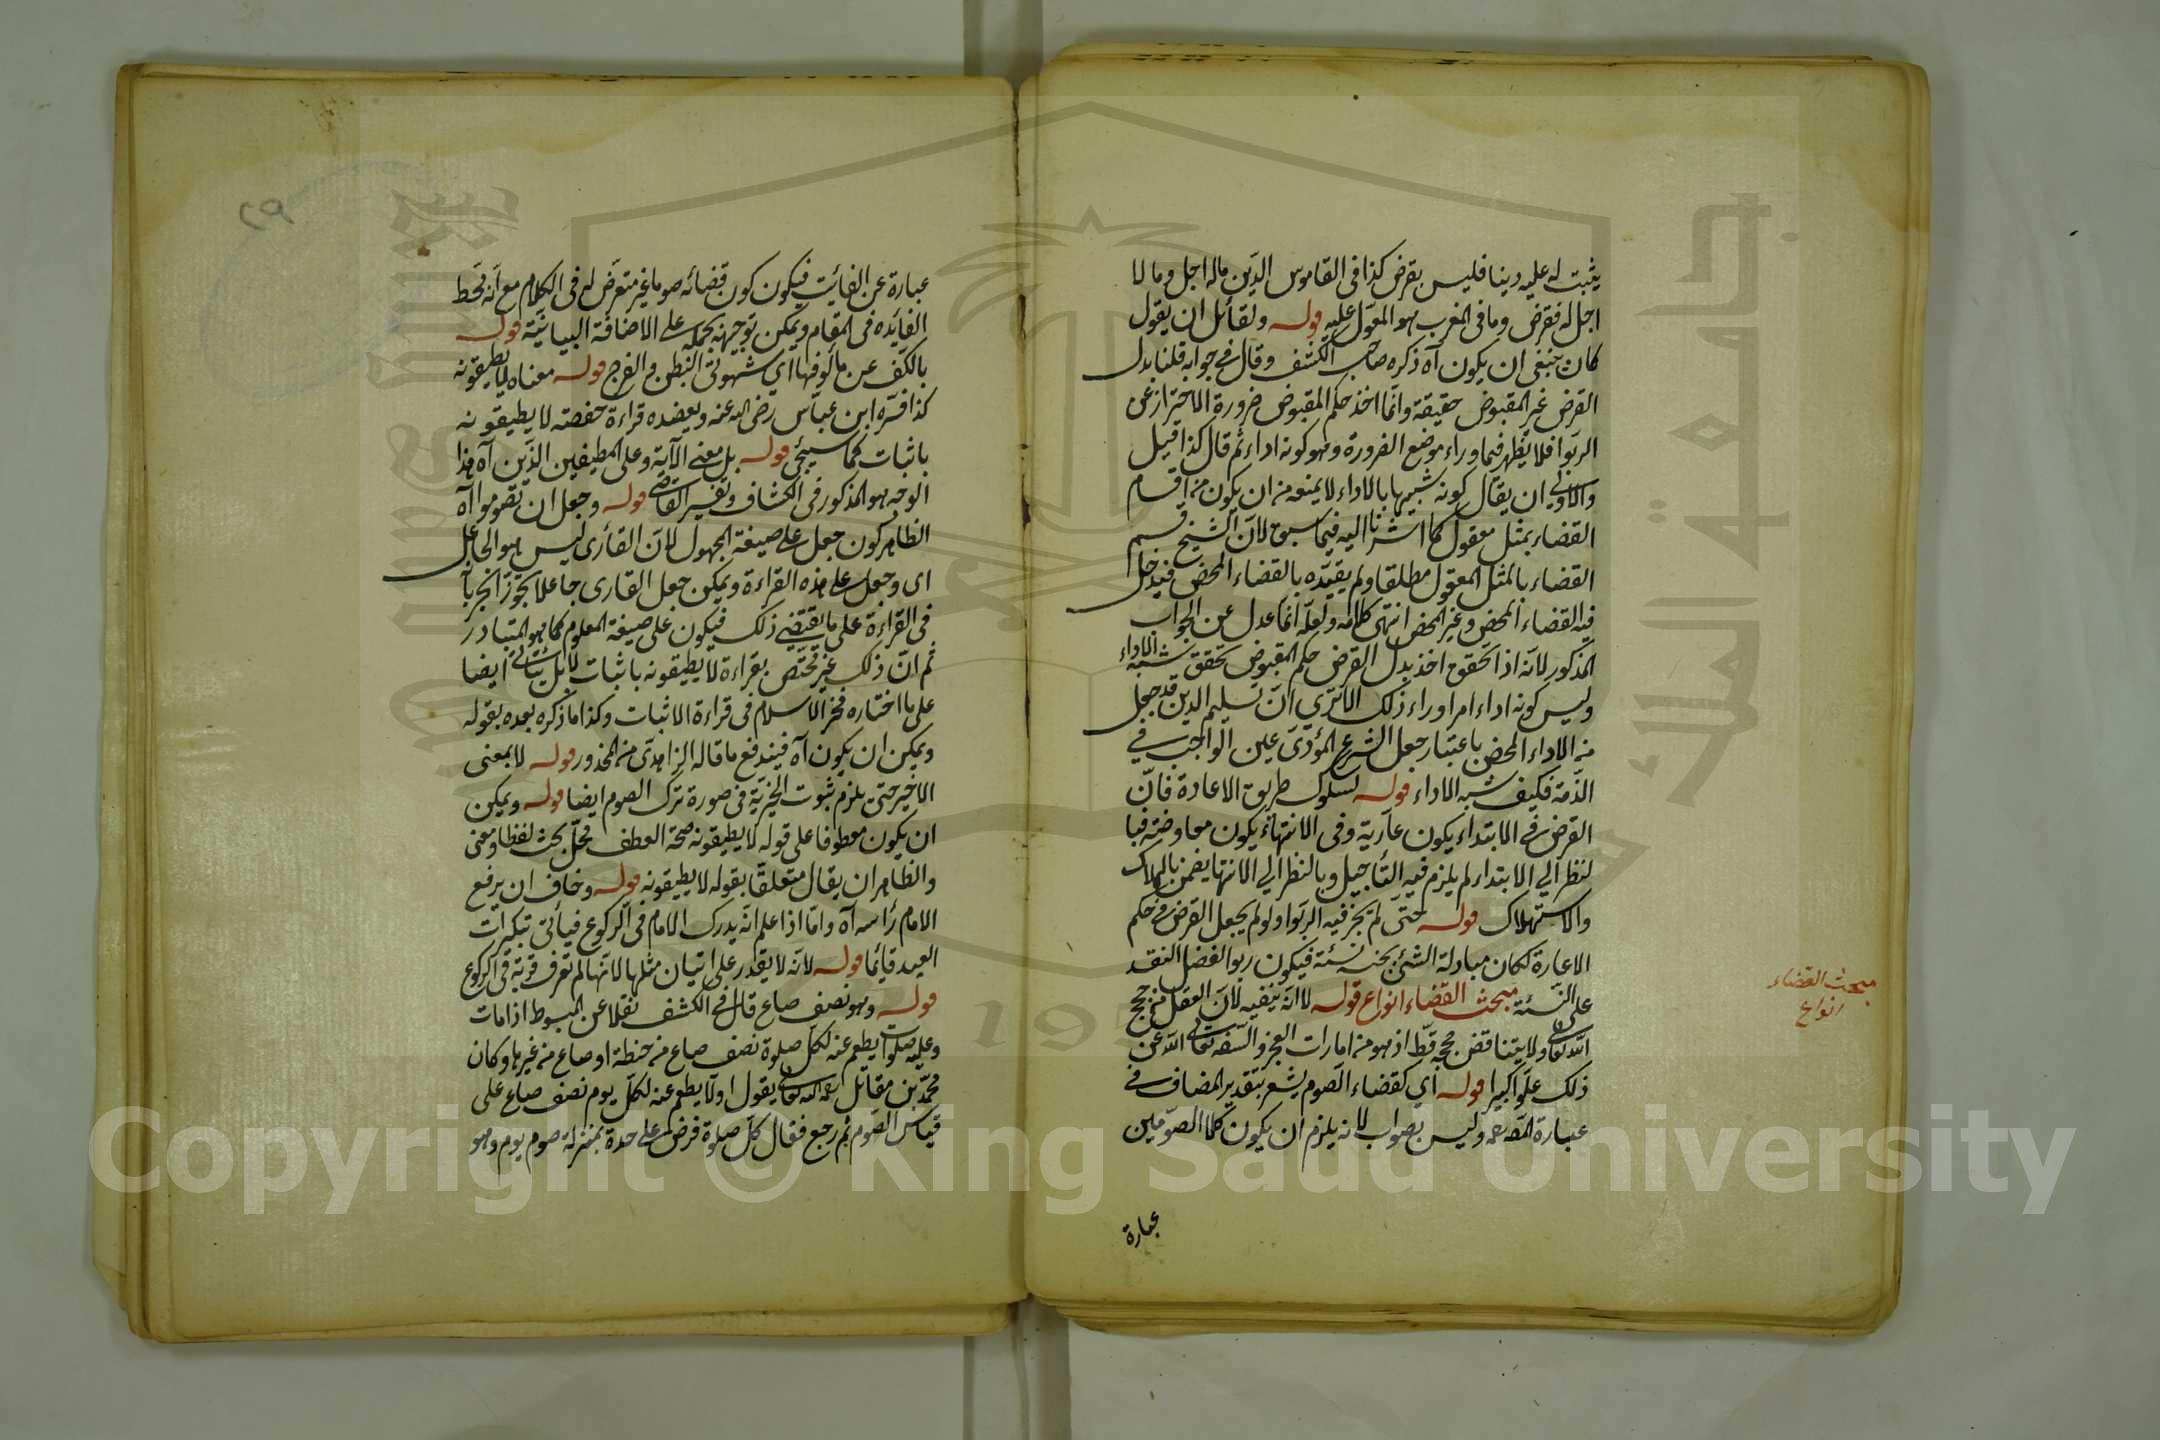 يثبت له عليه دينا فليس بقرض كذا فى القاموس الدين ماله اجل وما لا
اجل له فقرض وما فى المغرب هو المعول عليه قوله ولقائل ان يقول
كان ينبغى ان يكون آه ذكره صاحب الكشف وقال فى جوابه قلنا بدل
القرض غير المقبوض حقيقة وانما اخذ حكم المقبوض ضرورة الاحتراز عن
الربوا فلا يظهر فيما وراء موضع الضرورة وهو كونه اداء ثم قال كذا قيل
والاولى ان يقال كونه شبيها بالاداء لا يمنعه من ان يكون من اقسام
القضاء بمثل معقول كما اشرنا اليه فيما سبق لان الشيخ قسم
القضاء بالمثل المعقول مطلقا ولم يقيده بالقضاء المحض فيدخل
فيه القضاء المحض وغير المحض انتهى كلامه ولعله انما عدل عن الجواب
المذكور لانه اذا تحقق اخذ بدل القرض حكم المقبوض تحقق شبه الاداء
وليس كونه اداء امرا وراء ذلك الا ترى ان تسليم الدين قد جعل
من الاداء المحض باعتبار جعل الشرع المؤدى عين الواجب فى
الذمة فكيف شبه الاداء قوله لسلوك طريق الاعادة فان
القرض فى الابتداء يكون عارية وفى الانتهاء يكون معاوضة فبا
لنظر الى الابتداء لم يلزم فيه التأجيل وبالنظر الى الانتها يضمن بالهلاك
والاستهلاك قوله حتى لم يجز فيه الربوا ولو لم يجعل القرض فى حكم
الاعارة لكان مبادلة الشئ بجنسه نسئة فيكون ربوا لفضل النقد
على النسئة مبحث القضاء انواع قوله لا انه ينفيه لان العقل من حجج
الله تعالى ولا يتناقض حججه قط اذ هو من امارات العجز والسفه تعالى الله عن
ذلك علوا كبيرا قوله اى كقضاء الصوم يشعر بتقدير المضاف فى
عبارة المص وليس بصواب لانه يلزم ان يكون كلا الصومين
عبارة
مبحث القضاء
انواع
٢٩
عبارة عن الفائت فيكون كون قضائه صوما غير متعرض له فى الكلام مع انه محط
الفايده فى المقام ويمكن توجيهه بحمله على الاضافة البيانية قوله
بالكف عن مألوفها اى شهوتى البطن والفرج قوله معناه لا يطيقونه
كذا فسره ابن عباس رضى الله عنه ويعضده قراءة حفصة لا يطيقونه
باثبات كما سيجئ قوله بل معنى الآية وعلى المطيقين الذين آه هذا
الوجه هو المذكور فى الكشاف وتفسير القاضى قوله وجعل ان تصوموا آه
الظاهر كون جعل على صيغة المجهول لان القارى ليس هو الجاعل
اى وجعل على هذه القراءة ويمكن جعل القارى جاعلا بجوز
فى القراءة على ما يقتضى ذلك فيكون على صيغة المعلوم كما هو المتبادر
ثم ان ذلك غير مختص بقراءة لا يطيقونه باثبات لا بل يتأتى ايضا
على ما اختاره فخر الاسلام فى قراءة الاثبات وكذا ما ذكره بعده بقوله
ويمكن ان يكون آه فيندفع ما قاله الزاهدى من المحذور قوله لا بمعنى
الاخير حتى يلزم ثبوت الخيرية فى صورة ترك الصوم ايضا قوله ويمكن
ان يكون معطوفا على قوله لا يطيقونه صحة العطف محل بحث لفظا ومعنى
والظاهر ان يقال متعلقا بقوله لا يطيقونه قوله وخاف ان يرفع
الامام رأسه آه واما اذا علم انه يدرك الامام فى الركوع فيأتى تكبيرات
العيد قائما قوله لانه لا يقدر على اتيان مثلها لانها لم تعرف قربة فى الركوع
قوله وهو نصف صاع قال فى الكشف نقلا عن المبسوط اذا مات
وعليه صلوات يطعم عنه لكل صلوة نصف صاع من حنطة او صاع من غيرها وكان
محمد بن مقاتل رحمه الله تعالى يقول اولا يطعم عنه لكل يوم نصف صاع على
قياس الصوم ثم رجع فقال كل صلوة فرض على حدة بمنزلة صوم يوم وهو
Copyright © King Saud University